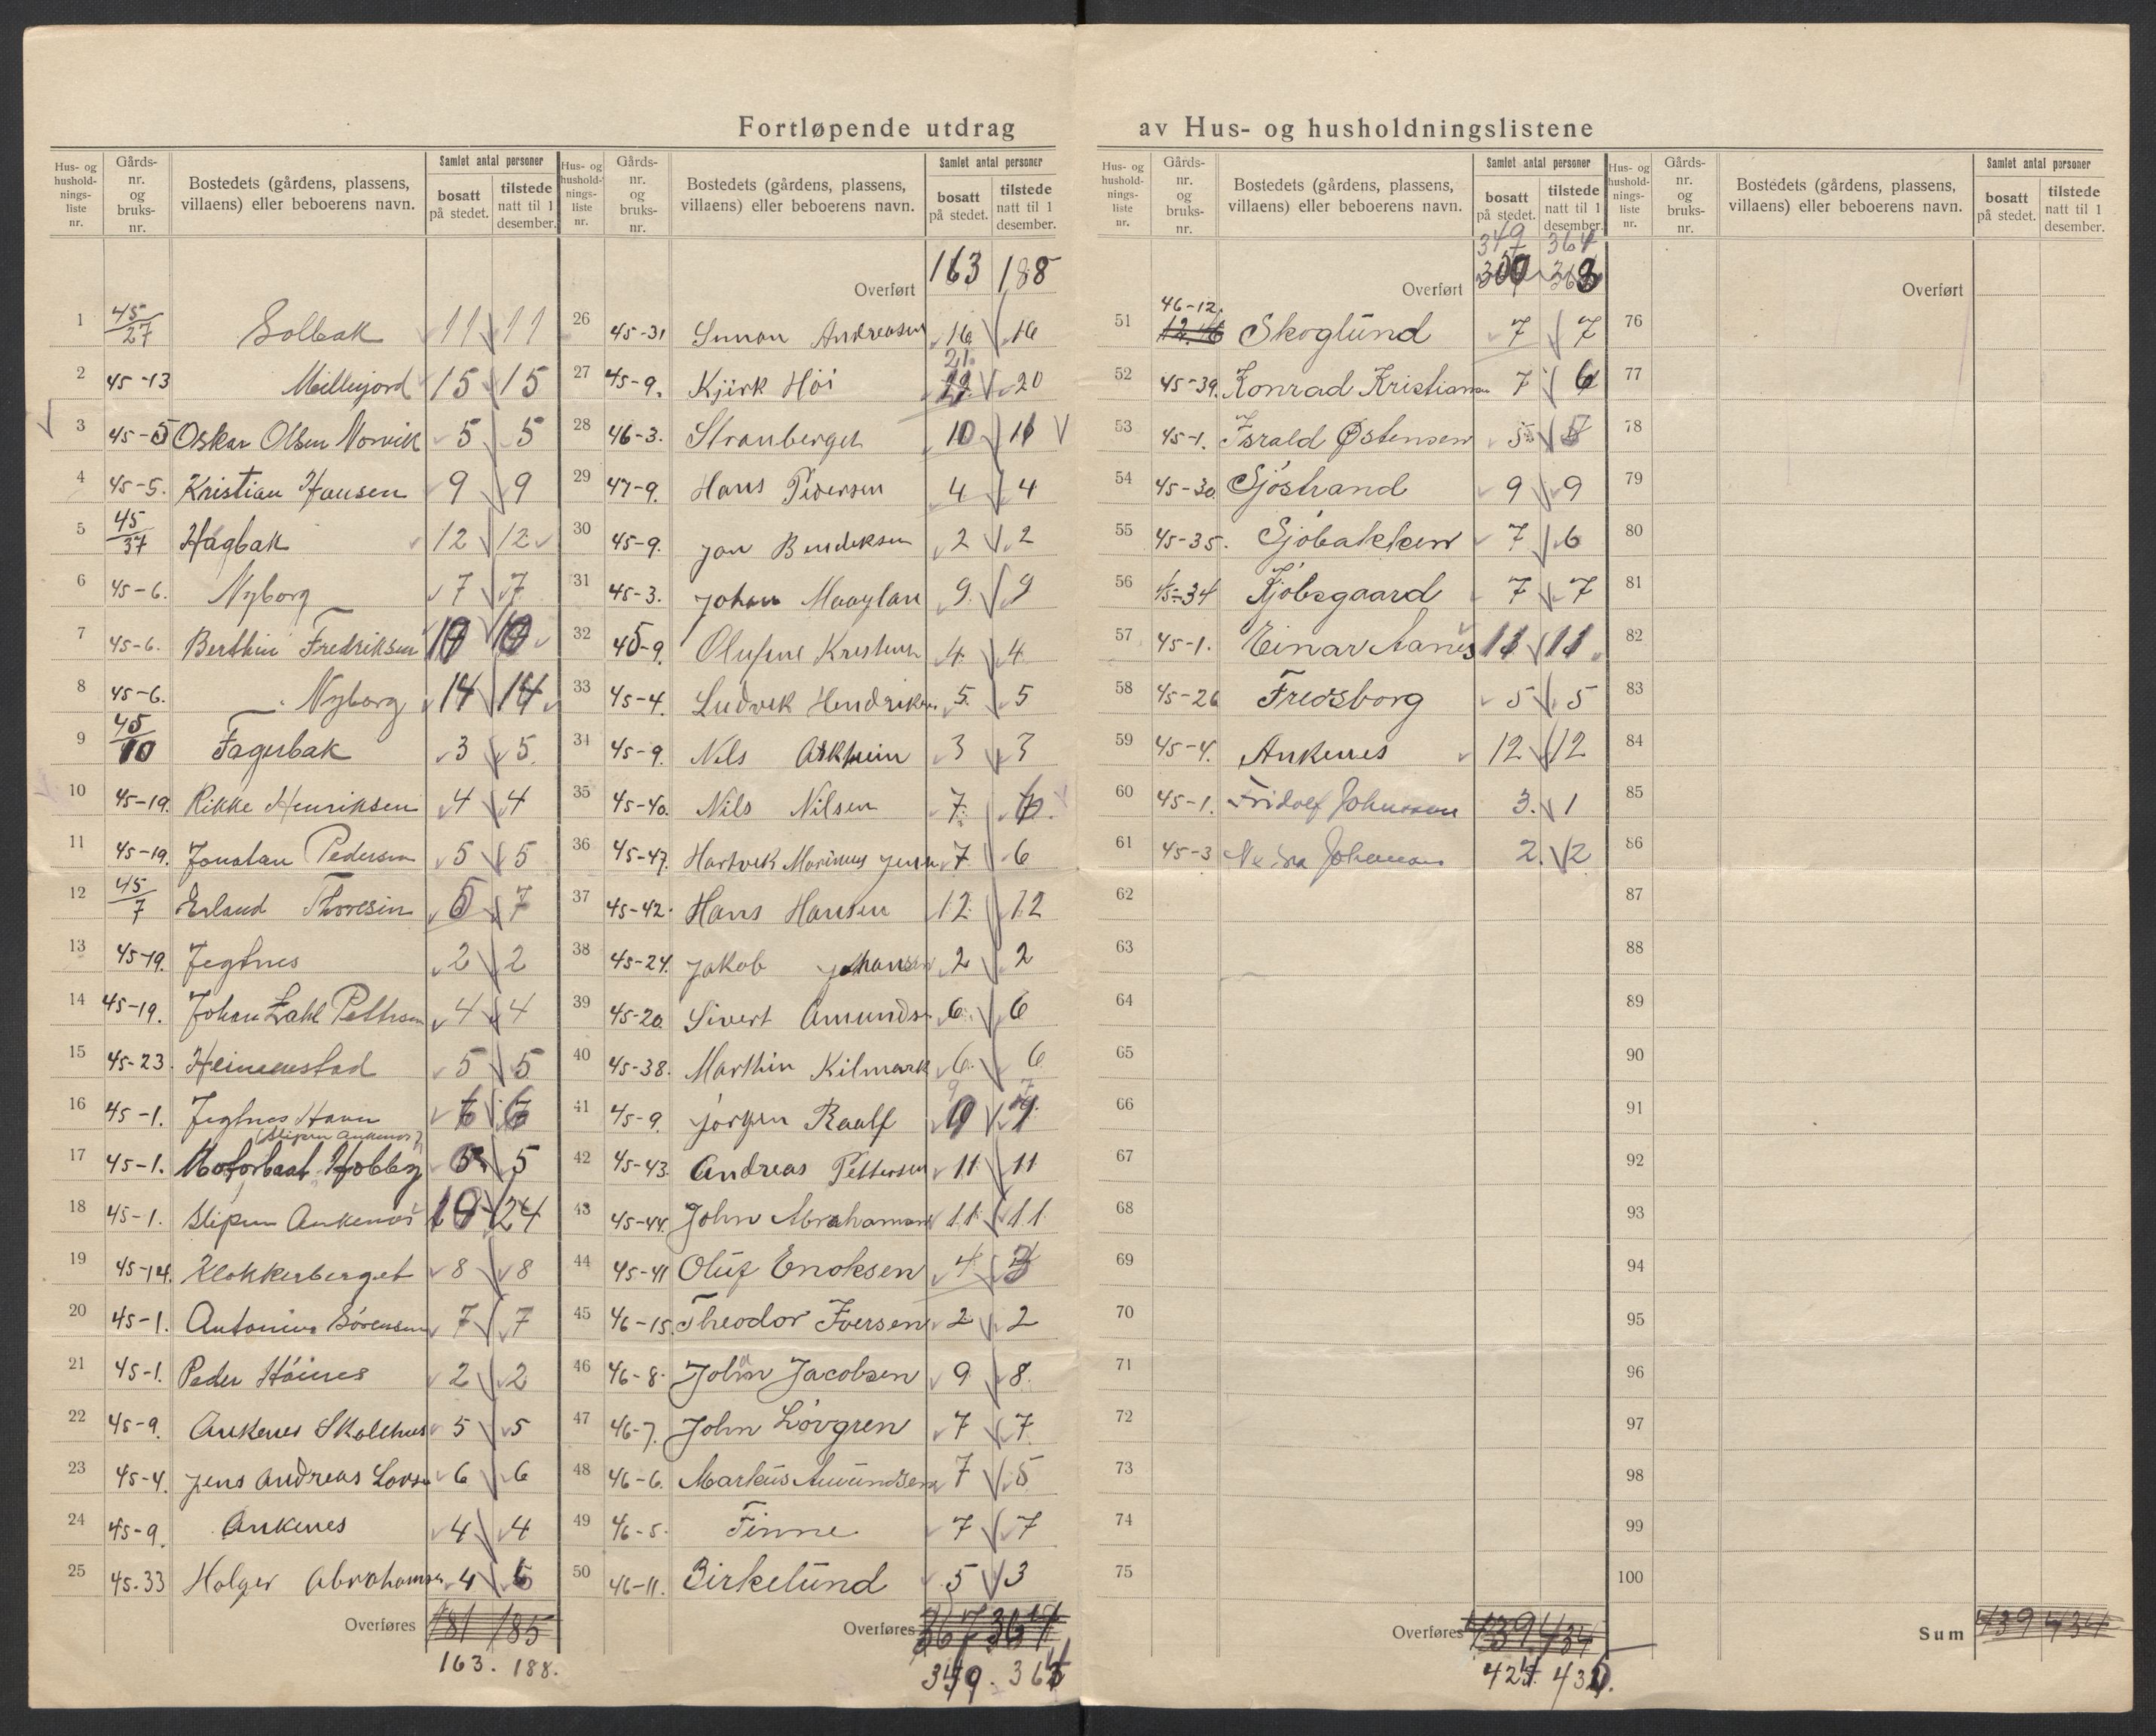 Fortløpende utdrag av Hus- og husholdningslistene
Hus- og hushold- nings- liste nr. | Gårds- nr. og bruks- nr. | Bostedets (gårdens, plassens, villaens) eller beboerens navn. | Samlet antal personer | bosatt på stedet. | tilstede natt til 1 desember.
1 45/27 Solbak 11 11
2 45-13 Millejord 15 15
3 45-5 Oskar Olsen Norvik 5 5
4 45-5. Kristian Hansen 9 9
5 45/37 Hágbak 12 12
6 45-6. Nyborg 7 7
7 45-6. Berthin Fredriksen 10 10
8 45-6. Nyborg 14 14
9 45/10 Fagerbak 3 5
10 45-19. Rikke Henriksen 4 4
11 45-19. Jonatan Pedersen 5 5
12 45/7 Erland Thoresin 5 7
13 45-19. Jegtnes 2 2
14 45-19. Johan Zahl Pettersen 4 4
15 45-23. Heimenstad 5 5
16 45-1. Jegtnes Havn 6 6
(Slipen Ankenes)
17 45-1. Motorbaat Hobby 5 5
18 45-1. Slipen Ankenes 19 24
19 45-14. Klokkerberget 8 8
20 45-1. Antonius Sörensen 7 7
21 45-1. Peder Höines 2 2
22 45-9. Ankenes Skolehus 5 5
23 45-4. Jens Andreas 6 6
24 45-9. Ankenes 4 4
25 45-33 Holger Abrahamsen 4 6
Overføres 181 185
163. 188.
Hus- og hushold- nings- liste nr. | Gårds- nr. og bruks- nr. | Bostedets (gårdens, plassens, villaens) eller beboerens navn. | Samlet antal personer | bosatt på stedet. | tilstede natt til 1 desember.
Overført 163 188
26 45-31 Simon Andreasen 16 16
21
27 45-9. Kjirk Höi 20
28 46-3. Stranberget 10 11
29 47-9. Hans Pedersen 4 4
30 45-9. Jan Bendiksen 2 2
31 45-3. Johan 9 9
32 45-9 Olufine 4 4
33 45-4. Ludvik Hendriksen 5 5
34 45-9. Nils 3 3
35 45-40. Nils Nilsen 7 6
36 45-47. Hartvik Marinus Jensen 7 6
37 45-42. Hans Hansen 12 12
38 45-24. Jakob Johansen 2 2
39 45-20. Sivert Amunds 6 6
40 45-38. Marthin Kilmark 6 6
9 7
41 45-9. Jörgen Raalf
42 45-43. Andreas Pettersen 11 11
43 45-44. John Abrahamsen 11 11
44 45-41 Oluf Enoksen 4 3
45 46-15. Theodor Iversen 2 2
46 46-8. Johan Jacobsen 9 8
47 46-7. John Lövgren 7 7
48 46-6. Markus Amundsen 7 5
49 46-5. Finne 7 7
50 46-11. Birkelund 5 3
Overføres 367 364
349. 364
Hus- og hushold- nings- liste nr. | Gårds- nr. og bruks- nr. | Bostedets (gårdens, plassens, villaens) eller beboerens navn. | Samlet antal personer | bosatt på stedet. | tilstede natt til 1 desember.
349 364
Overført 368
46-12.
51 12.46 Skoglund 7 7
52 45-39. Konrad Kristiansen 7 6
53 45-1. Israld Østensen 5 5
54 45-30. Sjöstrand 9 9
55 45-35. Sjöbakken 7 6
56 45-34 Kjöbsgaard 7 7
57 45-1. Einar Aanes 11 11
58 45-26 Fredsborg 5 5
59 45-4. Ankenes 12 12
60 45-1. Fridolf Johansen 3. 1
61 45-3 2. 2
62
63
64
65
66
67
68
69
70
71
72
73
74
75
Overføres 439 434
424. 430.
Hus- og hushold- nings- liste nr. | Gårds- nr. og bruks- nr. | Bostedets (gårdens, plassens, villaens) eller beboerens navn. | Samlet antal personer | bosatt på stedet. | tilstede natt til 1 desember.
Overført
76
77
78
79
80
81
82
83
84
85
86
87
88
89
90
91
92
93
94
95
96
97
98
99
100
Sum 439 434